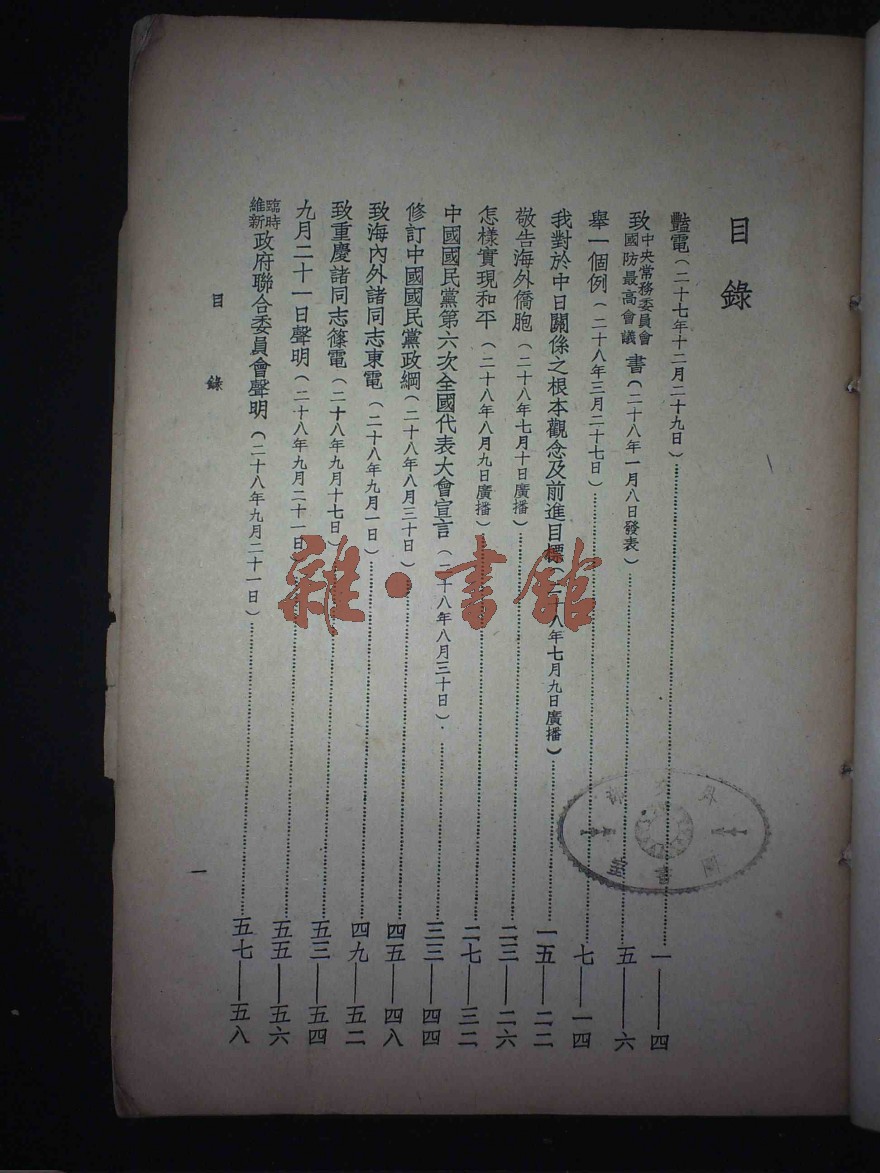 目錄
豔電（二十七年十二月二十九日）一——四
致中央常務委員會國防最高會議書（二十八年一月八日發表）五——六
舉一個例（二十八年三月二十七日）七——一四
我對於中日關係之根本觀念及前進目標（二十八年七月九日廣播）一五——二二
敬告海外僑胞（二十八年七月十日廣播）二三——二六
怎樣實現和平（二十八年八月九日廣播）二七——三二
中國國民黨第六次全國代表大會宣言（二十八年八月三十日）三三——四四
修訂中國國民黨政綱（二十八年八月三十日）四五——四八
致海內外諸同志東電（二十八年九月一日）四九——五二
致重慶諸同志篠電（二十八年九月十七日）五三——五四
九月二十一日聲明（二十八年九月二十一日）五五——五六
臨時維新政府聯合委員會聲明（二十八年九月二十一日）五七——五八
目錄
一
雜·書館